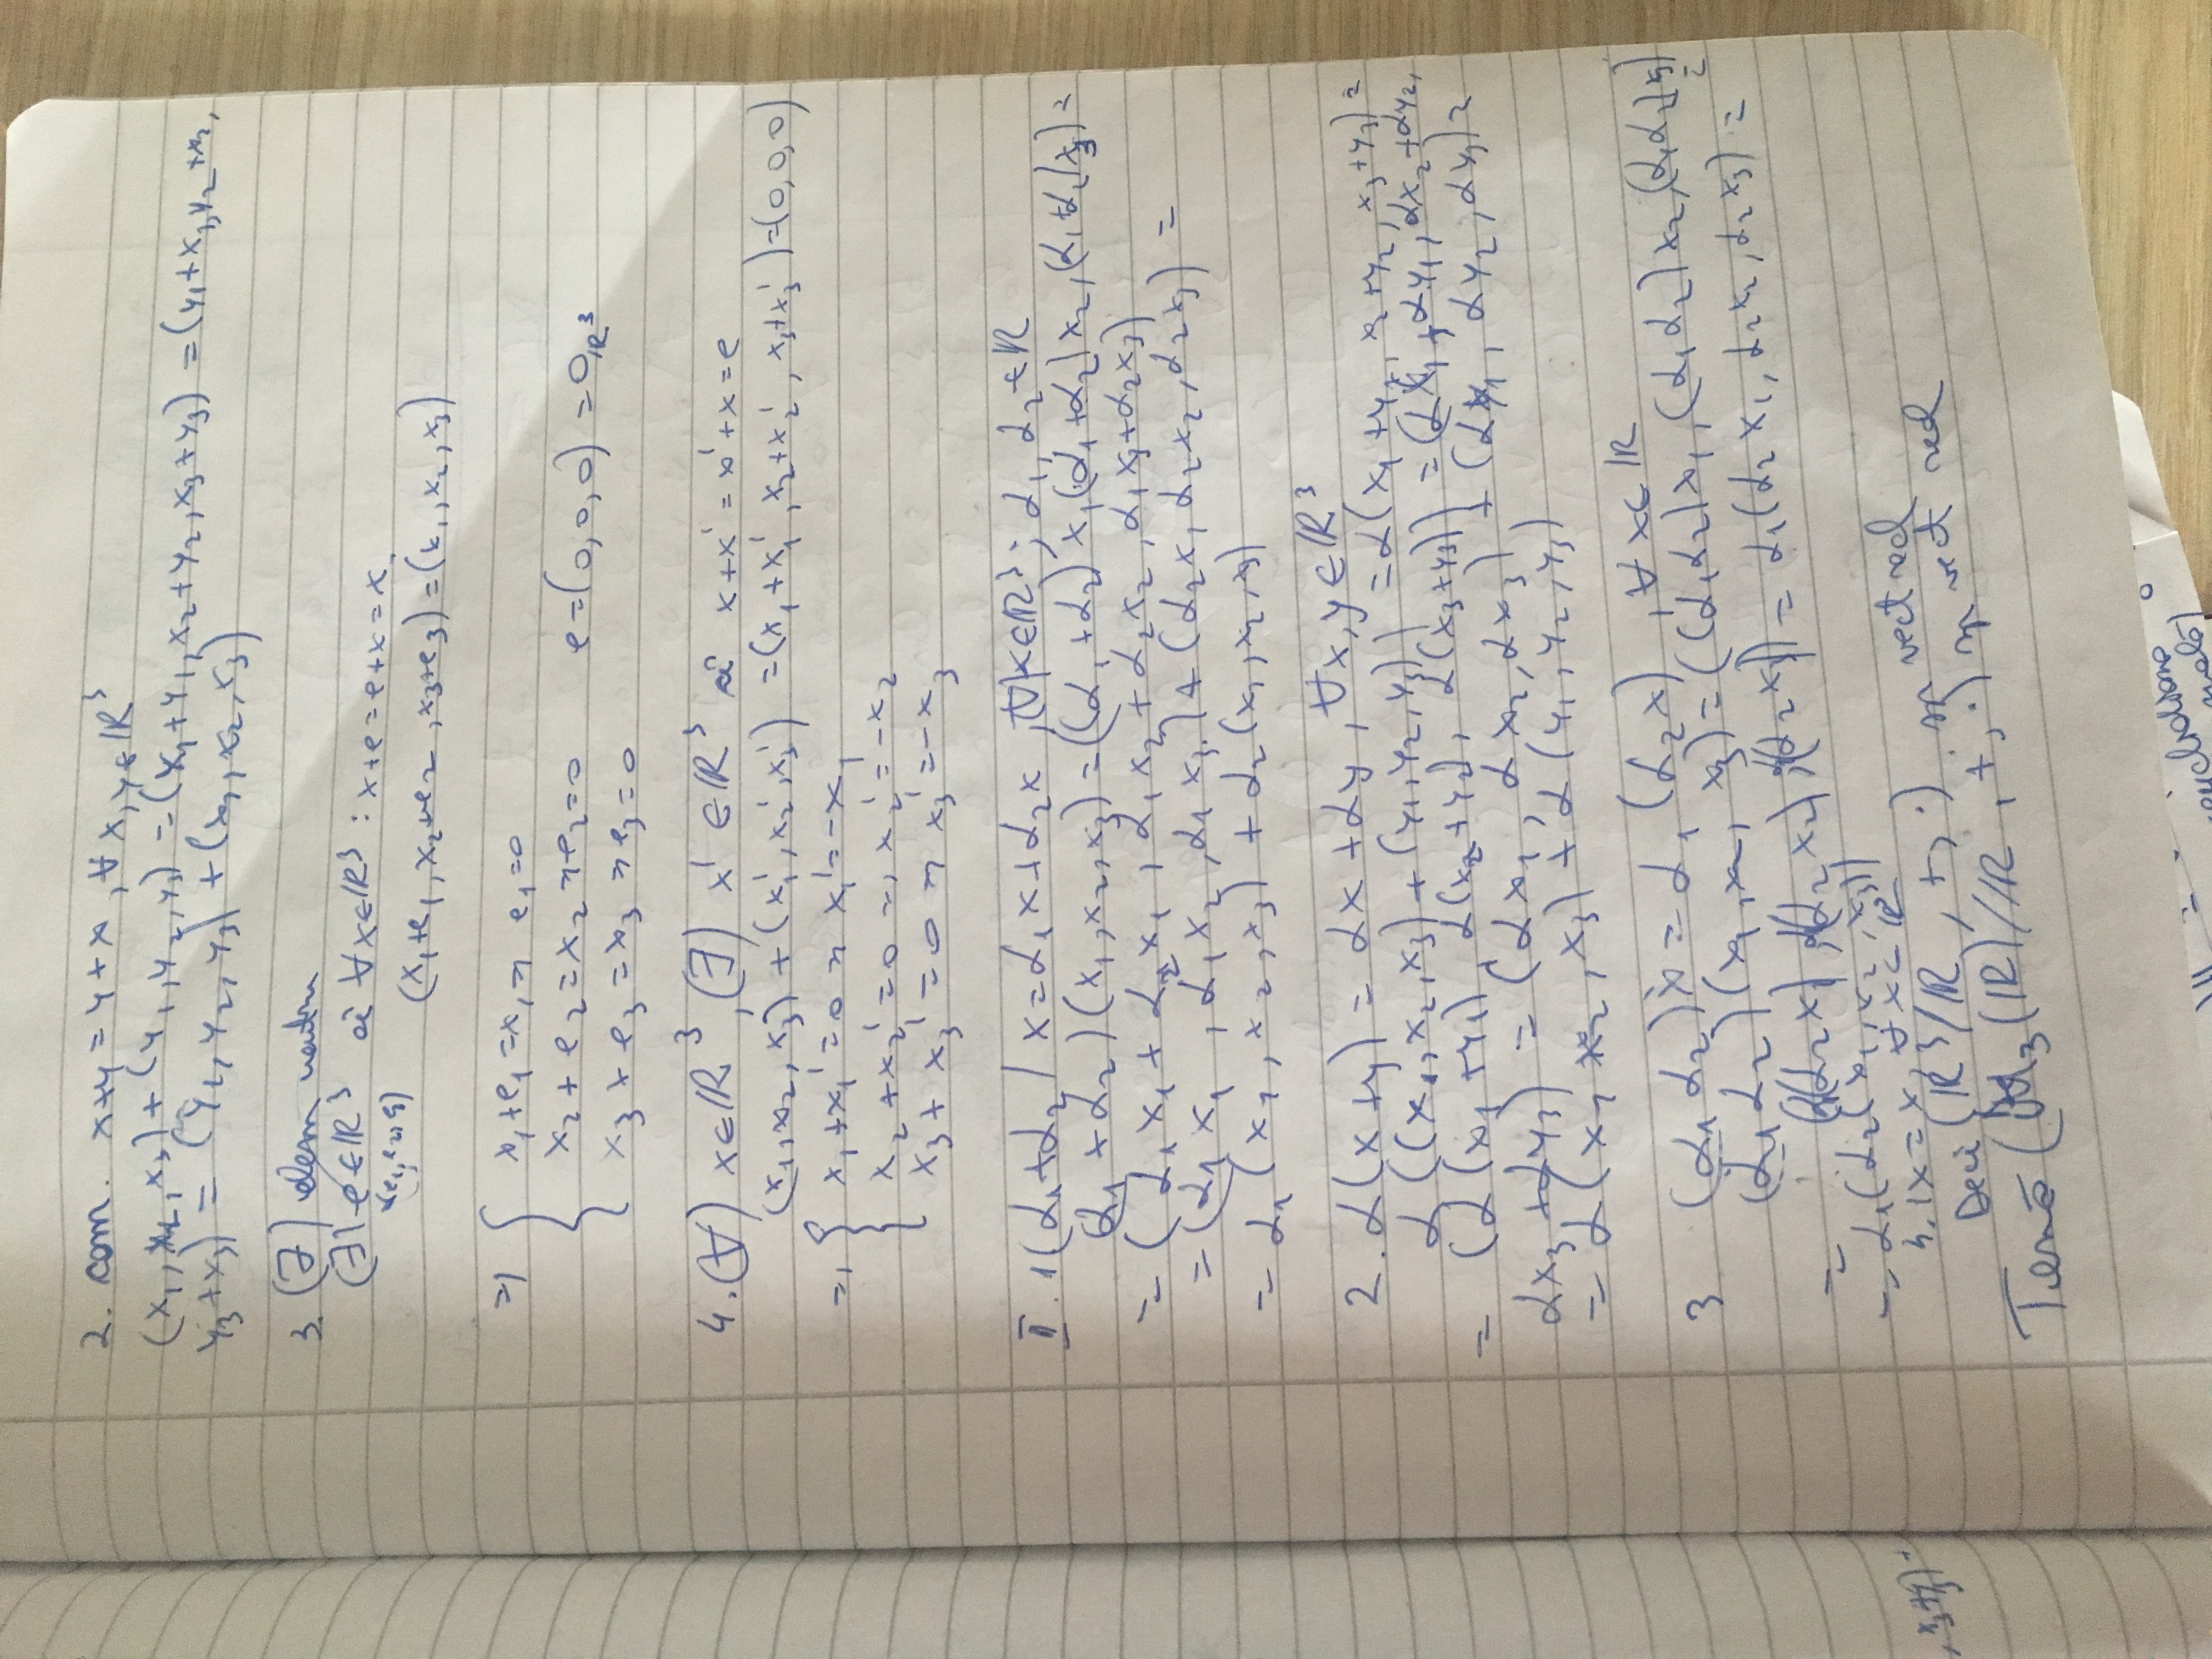 2. com. x+y = y+x, ∀ x, y ∈ ℝ³
(x₁, x₂, x₃) + (y₁, y₂, y₃) = (x₁+y₁, x₂+y₂, x₃+y₃) = (y₁+x₁, y₂+x₂,
y₃+x₃) = (y₁, y₂, y₃) + (x₁, x₂, x₃)
3. (∃) elem neutru
(∃) e∈ℝ³ aî ∀x∈ℝ³ : x+e = e+x = x.
(e₁, e₂, e₃)
(x₁+e₁, x₂+e₂, x₃+e₃) = (x₁, x₂, x₃)
=> { x₁+e₁ = x₁ => e₁=0
x₂+e₂ = x₂ => e₂=0 e=(0,0,0) = 0ℝ³
x₃+e₃ = x₃ => e₃=0
4. (∀) x∈ℝ³, (∃) x' ∈ℝ³ aî x+x' = x'+x = e
(x₁, x₂, x₃) + (x₁', x₂', x₃') = (x₁+x₁', x₂+x₂', x₃+x₃') = (0,0,0)
=> { x₁+x₁' = 0 => x₁' = -x₁
x₂+x₂' = 0 => x₂' = -x₂
x₃+x₃' = 0 => x₃' = -x₃
II. 1 (α₁+α₂) x = α₁x+α₂x, (∀) x∈ℝ³; α₁, α₂ ∈ ℝ
(α₁+α₂)(x₁, x₂, x₃) = ((α₁+α₂) x₁, (α₁+α₂) x₂, (α₁+α₂) x₃) =
= (α₁x₁ + α₂x₁, α₁x₂ + α₂x₂, α₁x₃+α₂x₃)
= (α₁x₁, α₁x₂, α₁x₃) + (α₂x₁ α₂x₂, α₂x₃) =
= α₁(x₁, x₂, x₃) + α₂(x₁, x₂, x₃)
2. α(x+y) = αx+αy, ∀x, y ∈ ℝ³
α((x₁, x₂, x₃) + (y₁, y₂, y₃)) = α(x₁+y₁, x₂+y₂, x₃+y₃) =
= (α(x₁+y₁), α(x₂+y₂), α(x₃+y₃)) = (αx₁+αy₁, αx₂+αy₂,
αx₃+αy₃) = (αx₁, αx₂, αx₃) + (αy₁, αy₂, αy₃) =
= α(x₁ x₂, x₃) + α(y₁, y₂, y₃)
3 (α₁α₂)x = α₁(α₂x), ∀ x∈ ℝ
(α₁α₂)(x₁, x₂, x₃) = ((α₁α₂)x₁, (α₁α₂)x₂, (α₁α₂)x₃) =
= (α₁(α₂x₁), α₁(α₂x₂), α₁(α₂x₃)) = α₁(α₂x₁, α₂x₂, α₂x₃) =
= α₁(α₂(x₁, x₂, x₃))
4. 1x = x, ∀ x∈ ℝ³
Deci (ℝ³/ℝ, +, ·) sp vect real
Temă (M₃(ℝ)/ℝ, +, ·) sp vect real